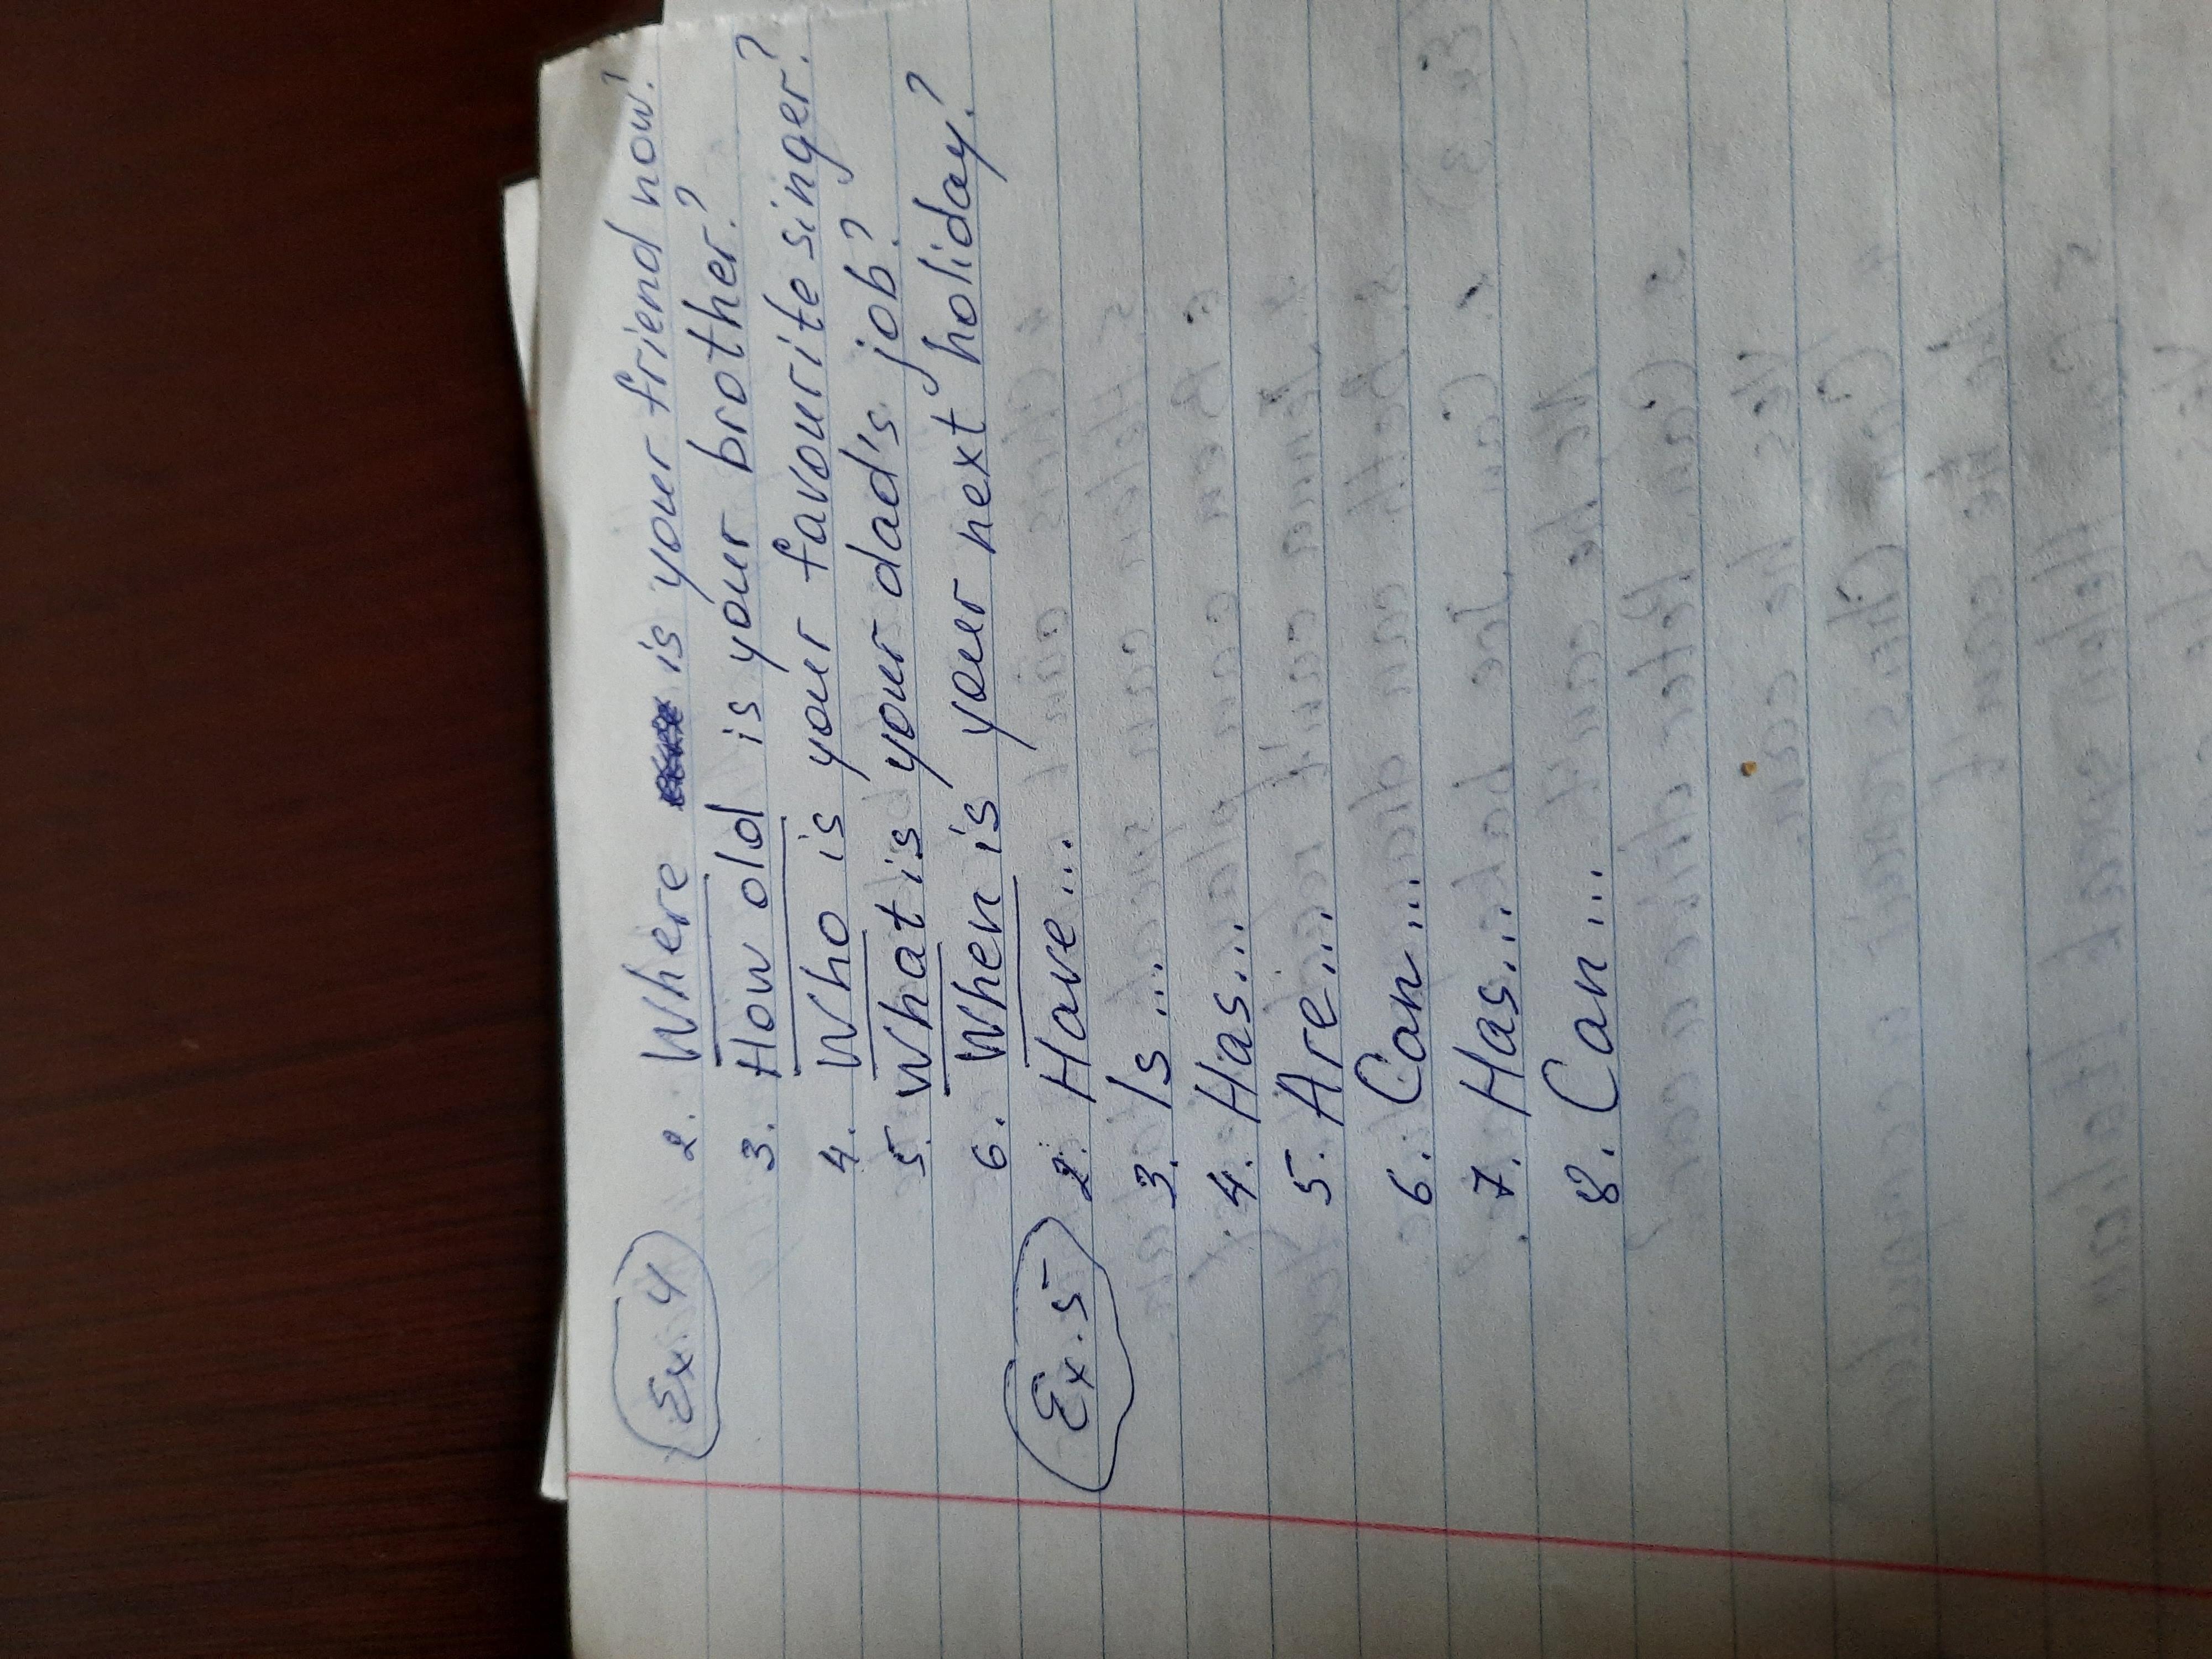 Ex. 4 2. Where is your friend now?
3. How old is your brother?
4. Who is your favourite singer?
5. What is your dad's job?
6. When is your next holiday?
Ex. 5 2. Have...
3. Is...
4. Has...
5. Are...
6. Can...
7. Has...
8. Can...